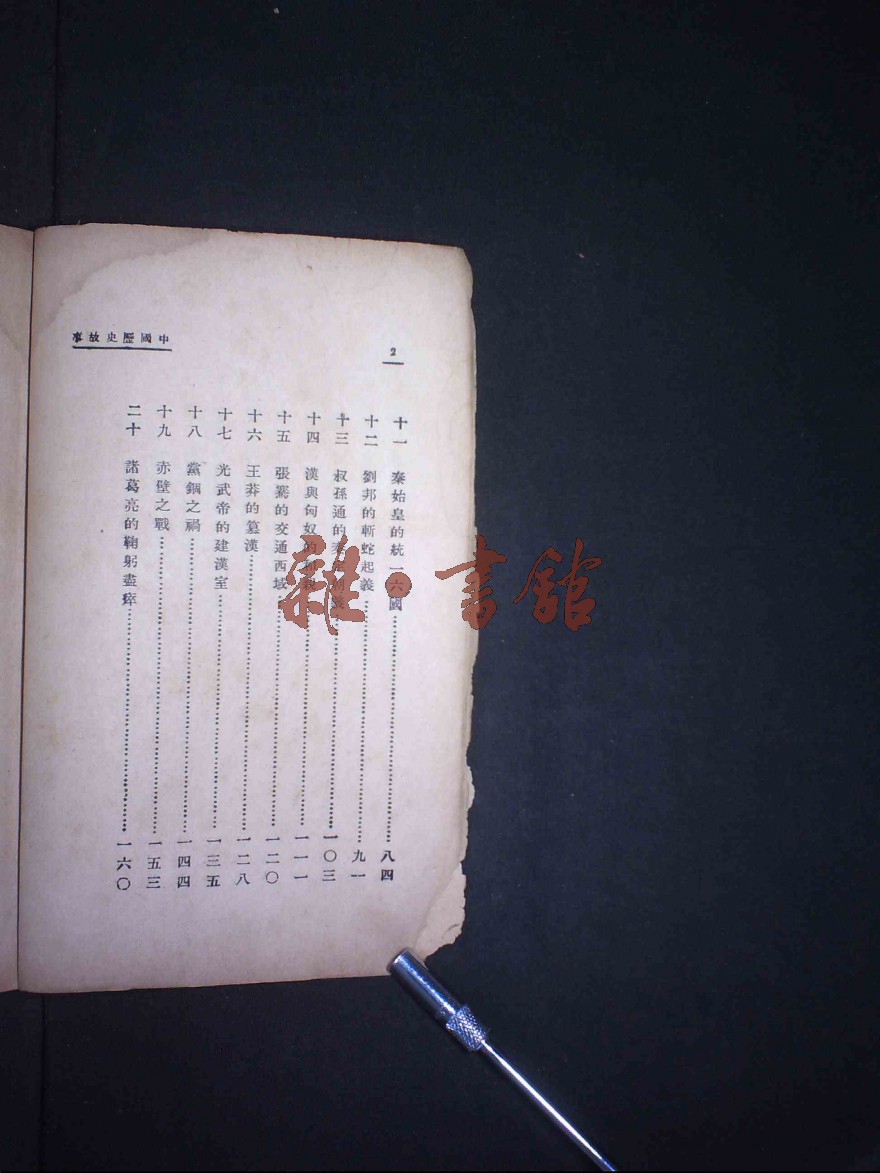 中國歷史故事
2
十一 秦始皇的統一六國……八四
十二 劉邦的斬蛇起義……九一
十三 叔孫通的……一〇三
十四 漢與匈奴的和親……一一一
十五 張騫的交通西域……一二〇
十六 王莽的篡漢……一二八
十七 光武帝的建漢室……一三五
十八 黨錮之禍……一四四
十九 赤壁之戰……一五三
二十 諸葛亮的鞠躬盡瘁……一六〇
雜·書館